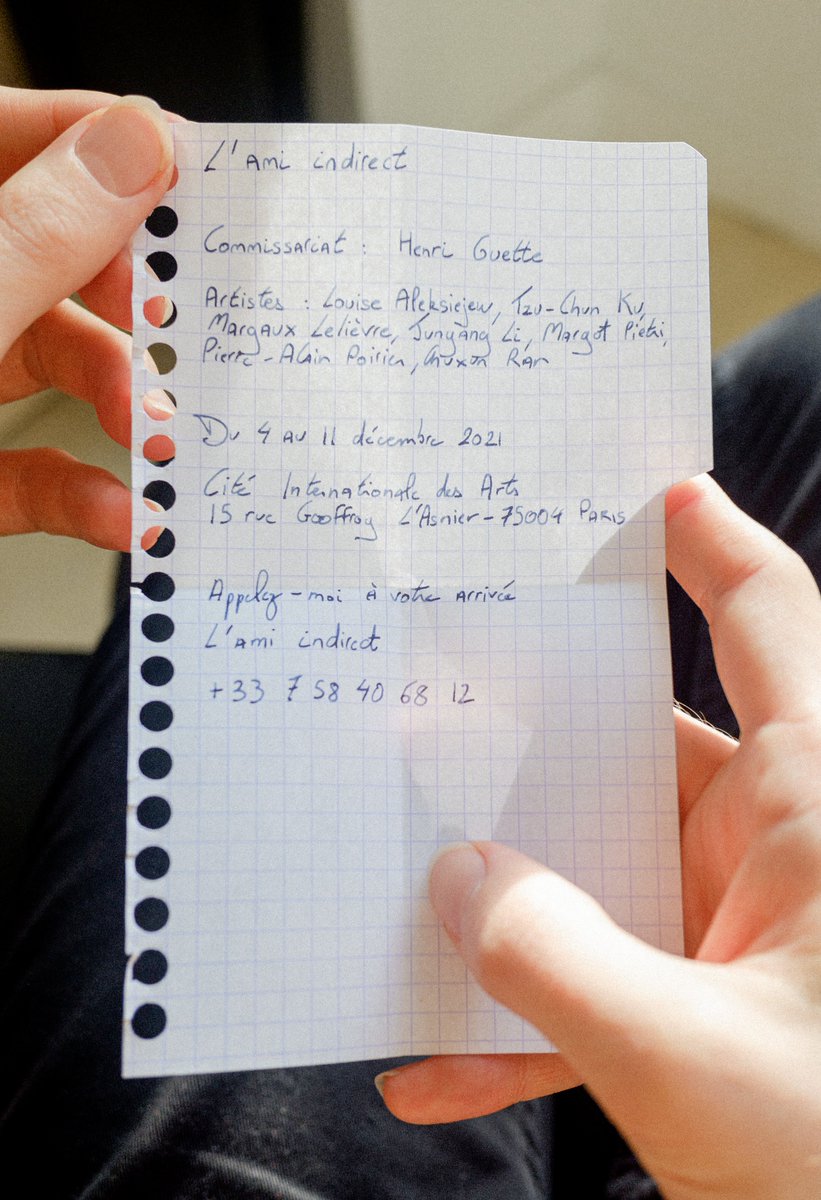 L'Ami indirect
Commissariat : Henri Guette
Artistes : Louise Aleksiejew, Tzu-Chun Ku,
Margaux Lelièvre, Junyang Li, Margot Pietri,
Pierre-Alain Poirier, Chuxun Ran
Du 4 au 11 décembre 2021
Cité Internationale des Arts
15 rue Geoffroy L'Asnier - 75004 Paris
Appelez-moi à votre arrivée
L'Ami indirect
+33 7 58 40 68 12